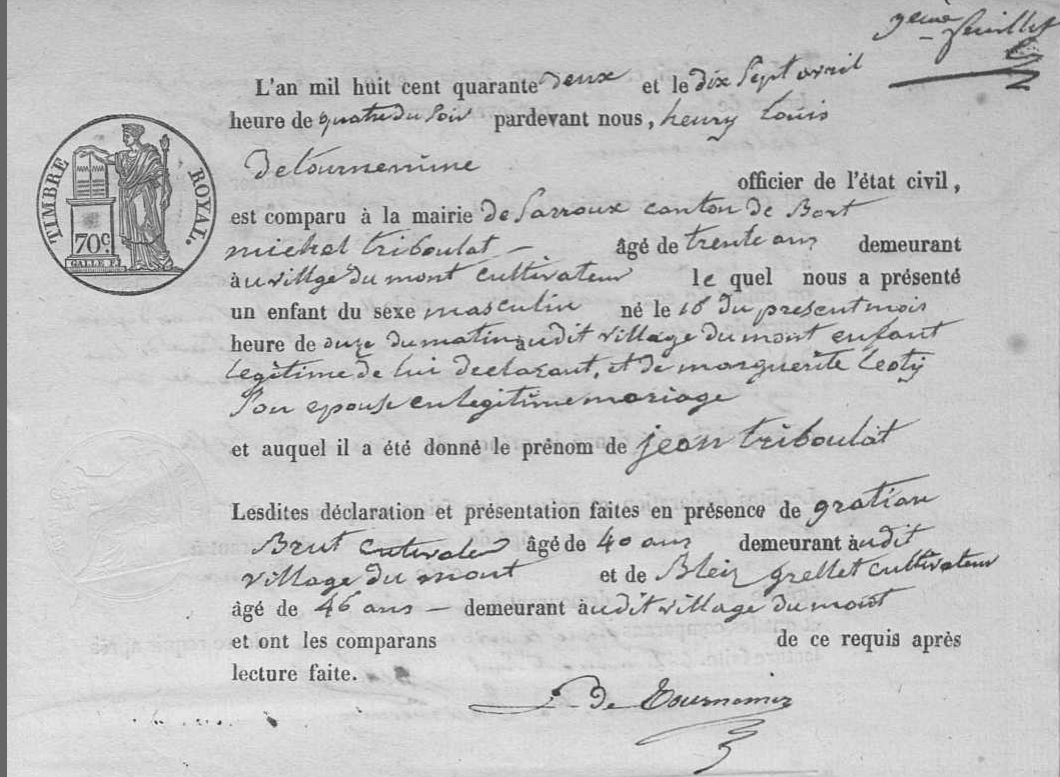 9eme feuillet
L'an mil huit cent quarante deux et le dix Sept avril
heure de quatre du Soir pardevant nous, henry Louis
De tournemime
officier de l'état civil,
est comparu à la mairie de Sarroux canton de Bort
michel triboulat — âgé de trente ans demeurant
au village du mont cultivateur le quel nous a présenté
un enfant du sexe masculin né le 16 du present mois
heure de onze du matin audit village du mont enfant
Legitime de lui declarant, et de marguerite Leoty
Son epouse en legitime mariage
et auquel il a été donné le prénom de jean triboulat
Lesdites déclaration et présentation faites en présence de gratian
Brut cutivateur âgé de 40 ans demeurant audit
village du mont et de Bleiz grellet cultivateur
âgé de 46 ans — demeurant audit village du mont
et ont les comparans de ce requis après
lecture faite.
De Tournemire
TIMBRE ROYAL.
70c
GALLE F.